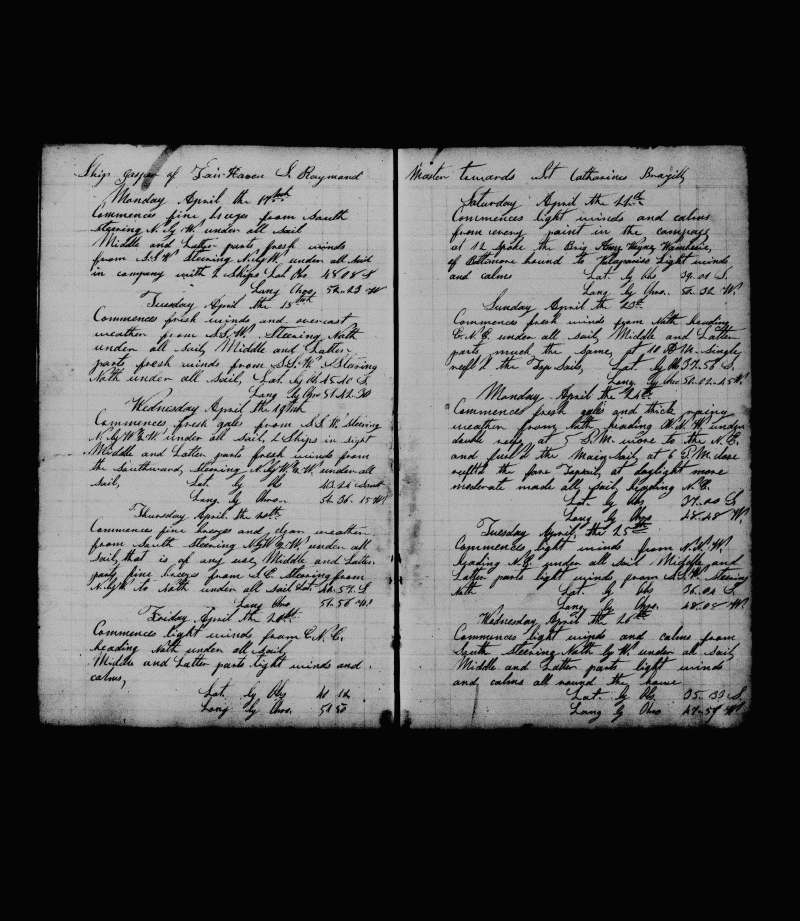 Ship Gasper of Fair Haven S. Raymond
Monday April the 17th
Commences fine breezes from South
steering N. by W. under all sail
Middle and Latter parts fresh winds
from S.S.W. Steering N. by W. under all sail
in company with 2 Ships Lat Obs 48 08 S
Long Chro. 52..23 W
Tuesday April the 18th
Commences fresh winds and overcast
weather from S.S.W. Steering North
under all Sail, Middle and Latter
parts fresh winds from S.S.W. Stearing
North under all Sail, Lat. by Ob 45..10 S
Long by Chro 51 42 30
Wednesday April the 19th
Commences fresh gales from S.S.W. steering
under all Sail, 2 Ships in sight
Middle and Latter parts fresh winds from
the Southward, Steering under all
Sail, Lat. by Obs
Long. by Chro.. 52..36..15 W
Thursday April the 20th
Commences fine breezes and clear weather
from South Steering under all
Sail, that is of any use, Middle and Latter
parts fine breezes from Steering from
N. by W. to North under all Sail Lat 42..57 S
Long Chro 51..56 W
Friday April the 21st
Commences light winds from E.N.E.
heading North under all Sail
Middle and Latter parts light winds and
calms,
Lat. by Obs 41 12
Long by Chro. 51 50
Master towards St Catharines Brazill
Saturday April the 22d
Commences light winds and calms
from every point in the compass
at 12 Spoke the Brig
of Boltimore bound to Valaparies Light winds
and calms Lat. by Obs 39..01 S.
Long by Chro.. 52..32 W.
Sunday April the 23d
Commences fresh winds from North heading
E.N.E. under all sail, Middle and Latter
parts much the same, at 10 P.M. Single
reef'd the Top Sails, Lat. by Ob 37..56 S.
Long. by Chro 50..02..45 W.
Monday April the 24th
Commences fresh gales and thick rainy
weather from North heading under
double reefs, at 5 P.M. wore to the N.E.
and furl'd the Main Sail, at 6 P.M. close
reef'd the fore Topsail, at daylight more
moderate made all sail heading N.E.
Lat. by Obs 37..20 S
Long by Chro 48..48 W.
Tuesday April the 25th
Commences light winds from N.N.W.
heading N.E. under all sail Middle and
Latter parts light winds from S.S.W. Steering
North Lat. by Obs 36..04 S.
Long. by Chro. 48..08 W.
Wednesday April the 26th
Commences light winds and calms from
South Steering North by W. under all Sail
Middle and Latter parts light winds
and calms all round the house
Lat. by Obs 35..33 S.
Long by Chro 47..57 W.